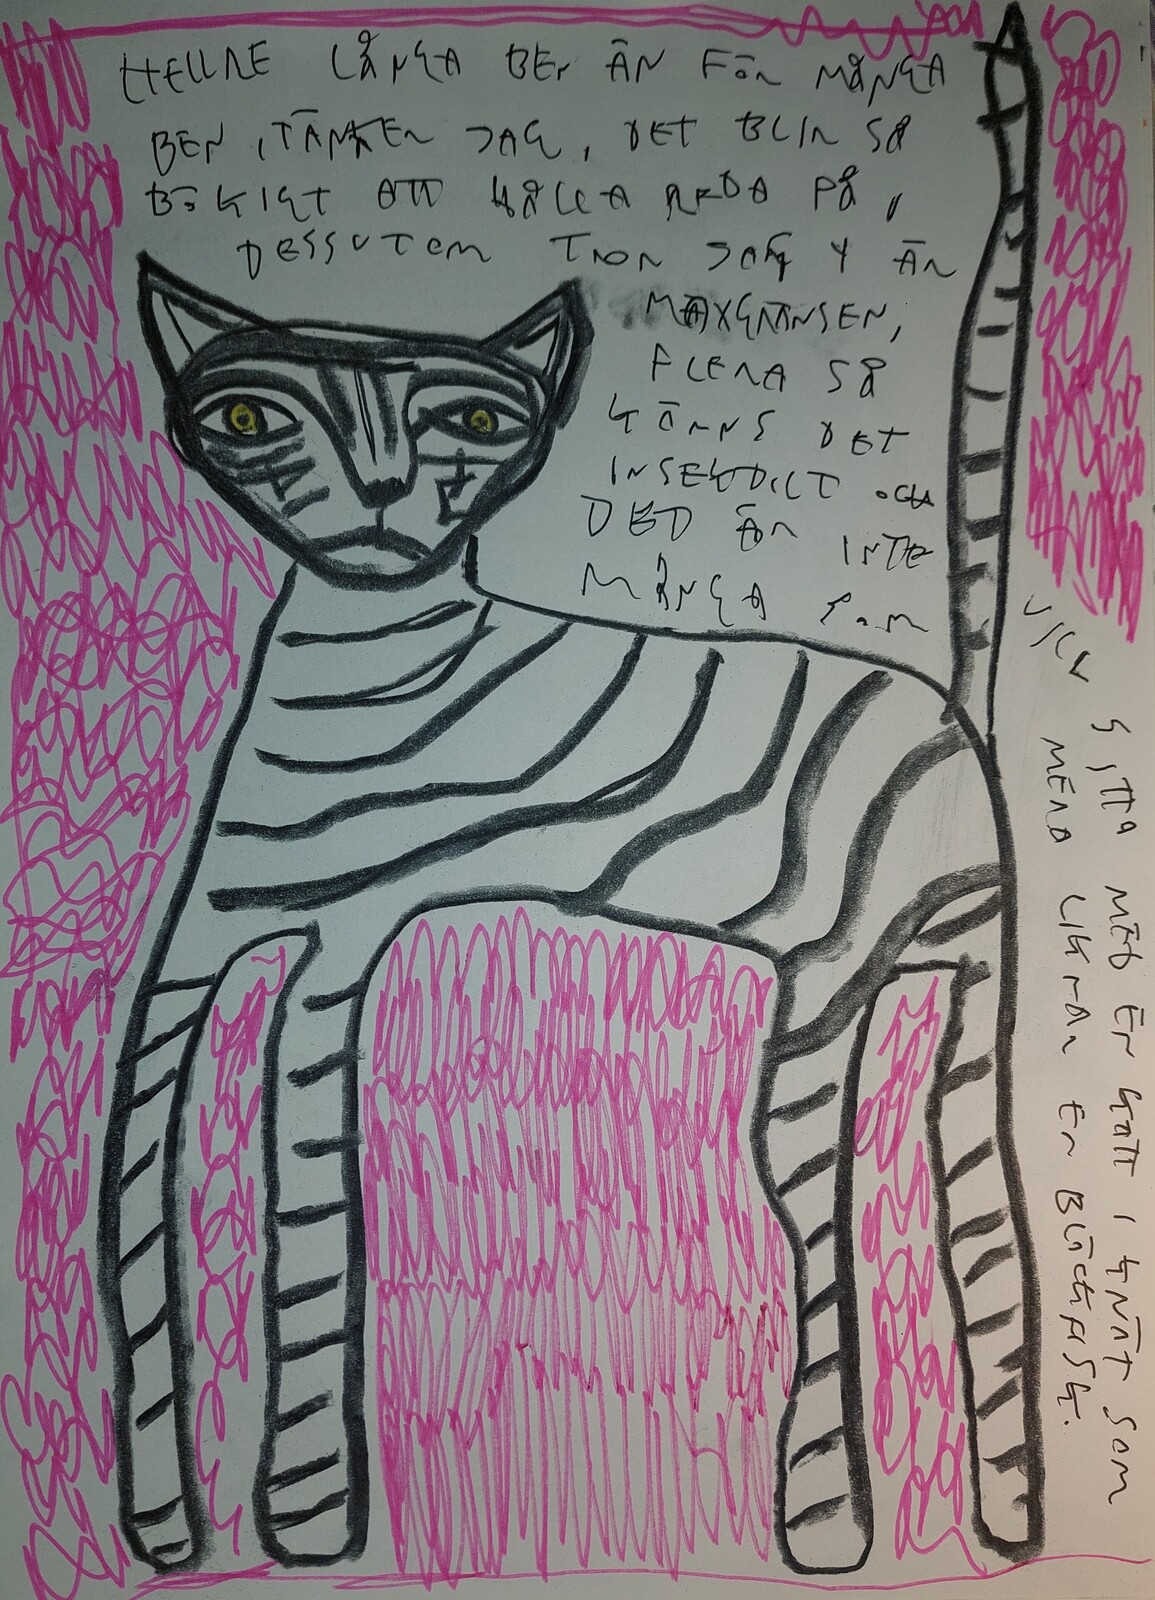 HELLRE LÅNGA BEN ÄN FÖR MÅNGA
BEN, TÄNKER JAG, DET BLIR SÅ
BÖKIGT ATT HÅLLA REDA PÅ,
DESSUTOM TROR JAG 4 ÄR
MAXGRÄNSEN,
FLERA SÅ
KÄNNS DET
INSEKTLIKT OCH
DET ÄR INTE
MÅNGA SOM
VILL SITTA MED EN KATT I KNÄT SOM
MERA LIKNAR EN BLÄCKFISK.